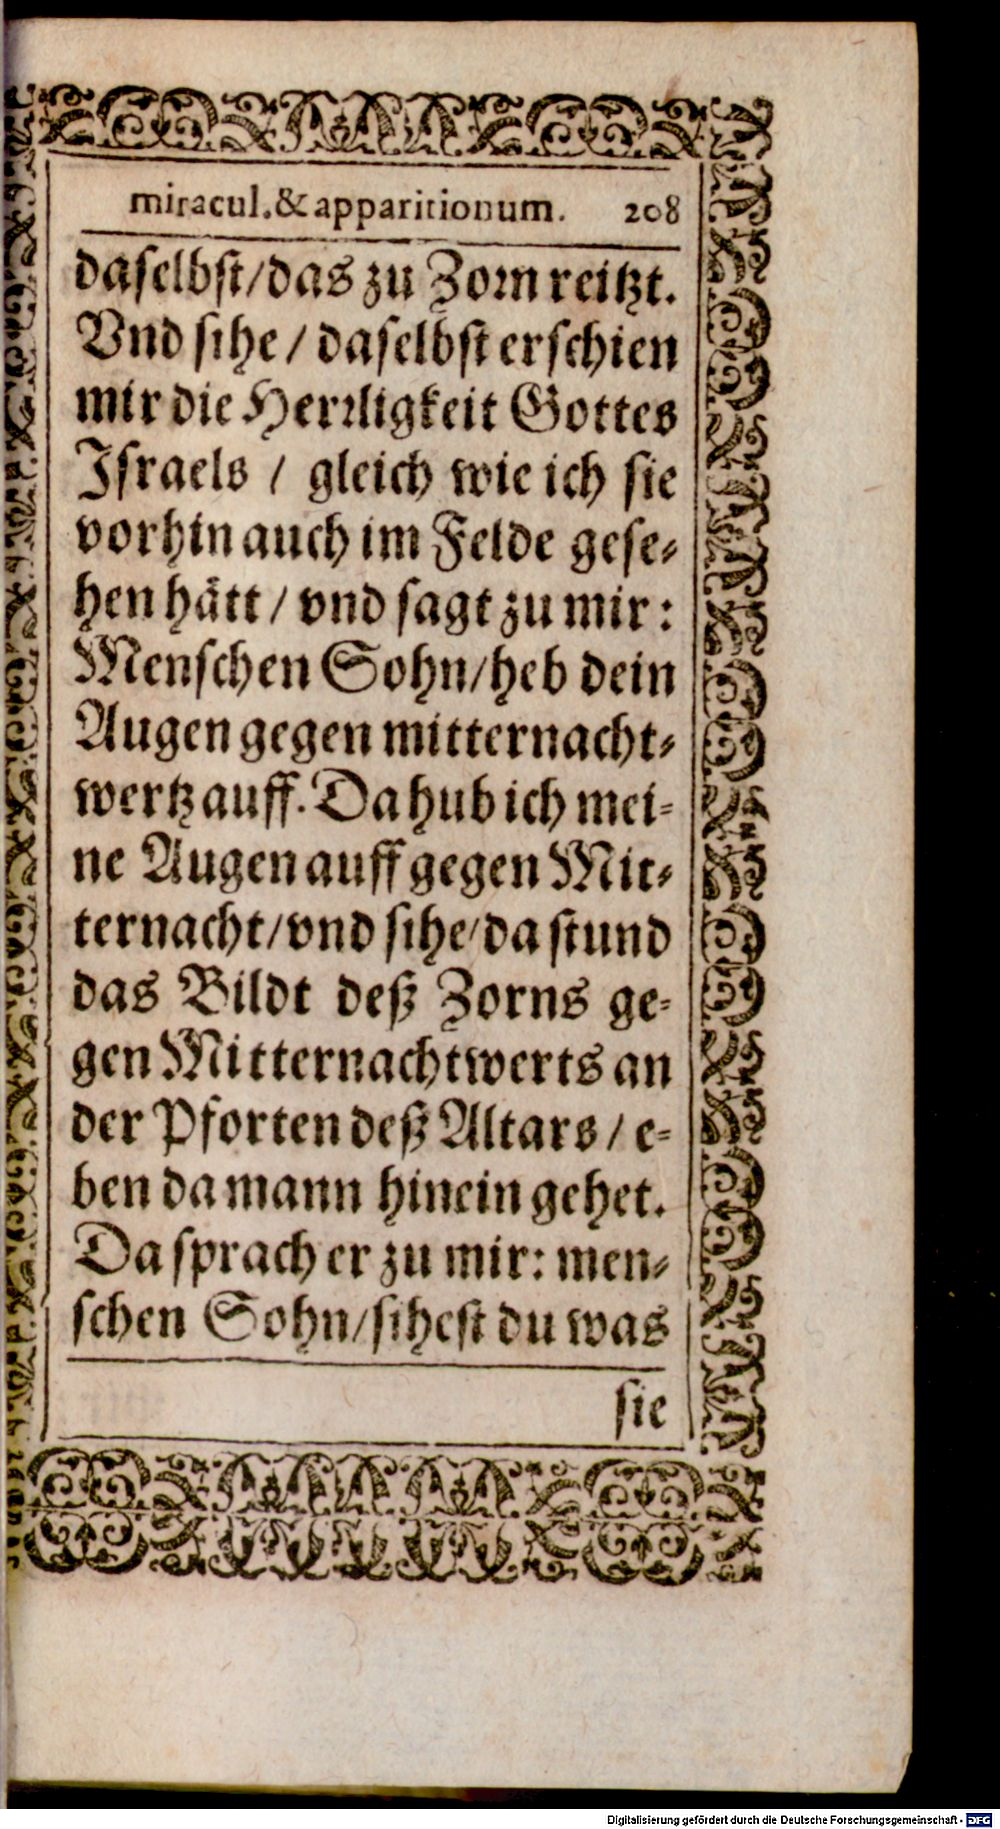 miracul.& apparitionum. 208
daselbst/das zu Zorn reitzt.
Vnd sihe / daselbst erschien
mir die Herrligkeit Gottes
Israels / gleich wie ich sie
vorhin auch im Felde gese-
hen hätt / vnd sagt zu mir:
Menschen Sohn/heb dein
Augen gegen mitternacht-
wertz auff. Da hub ich mei-
ne Augen auff gegen Mit-
ternacht/vnd sihe/da stund
das Bildt deß Zorns ge-
gen Mitternachtwerts an
der Pforten deß Altars / e-
ben da mann hinein gehet.
Da sprach er zu mir: men-
schen Sohn/sihest du was
sie
Digitalisierung gefördert durch die Deutsche Forschungsgemeinschaft - DFG